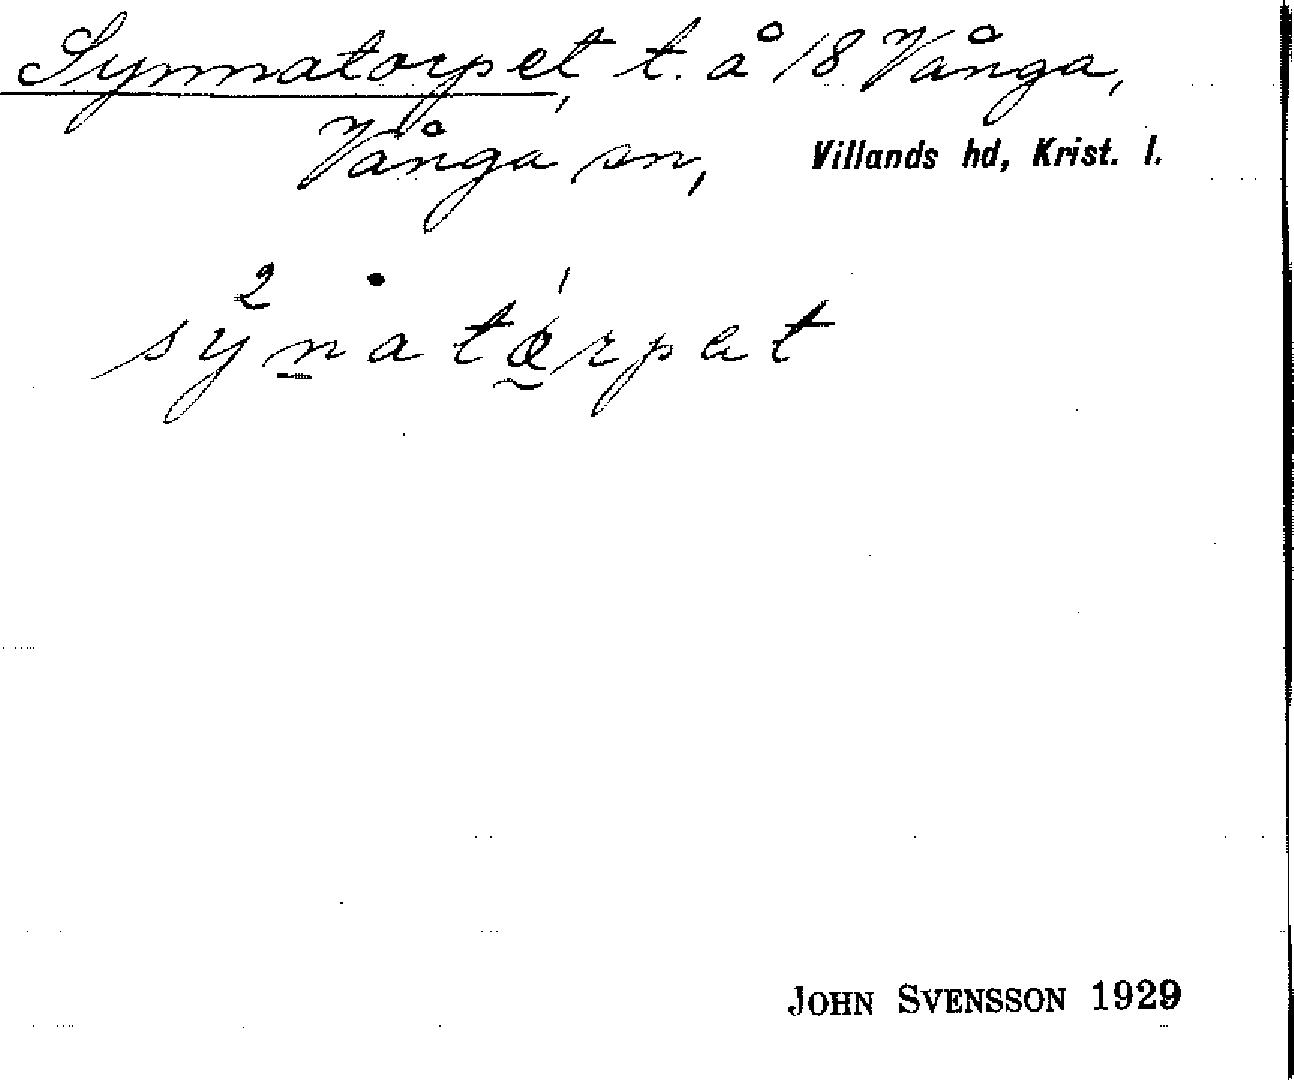 Synnatorpet, t. å 18 Vånga,
Vånga sn, Villands hd, Krist. l.
synatærpat
JOHN SVENSSON 1929